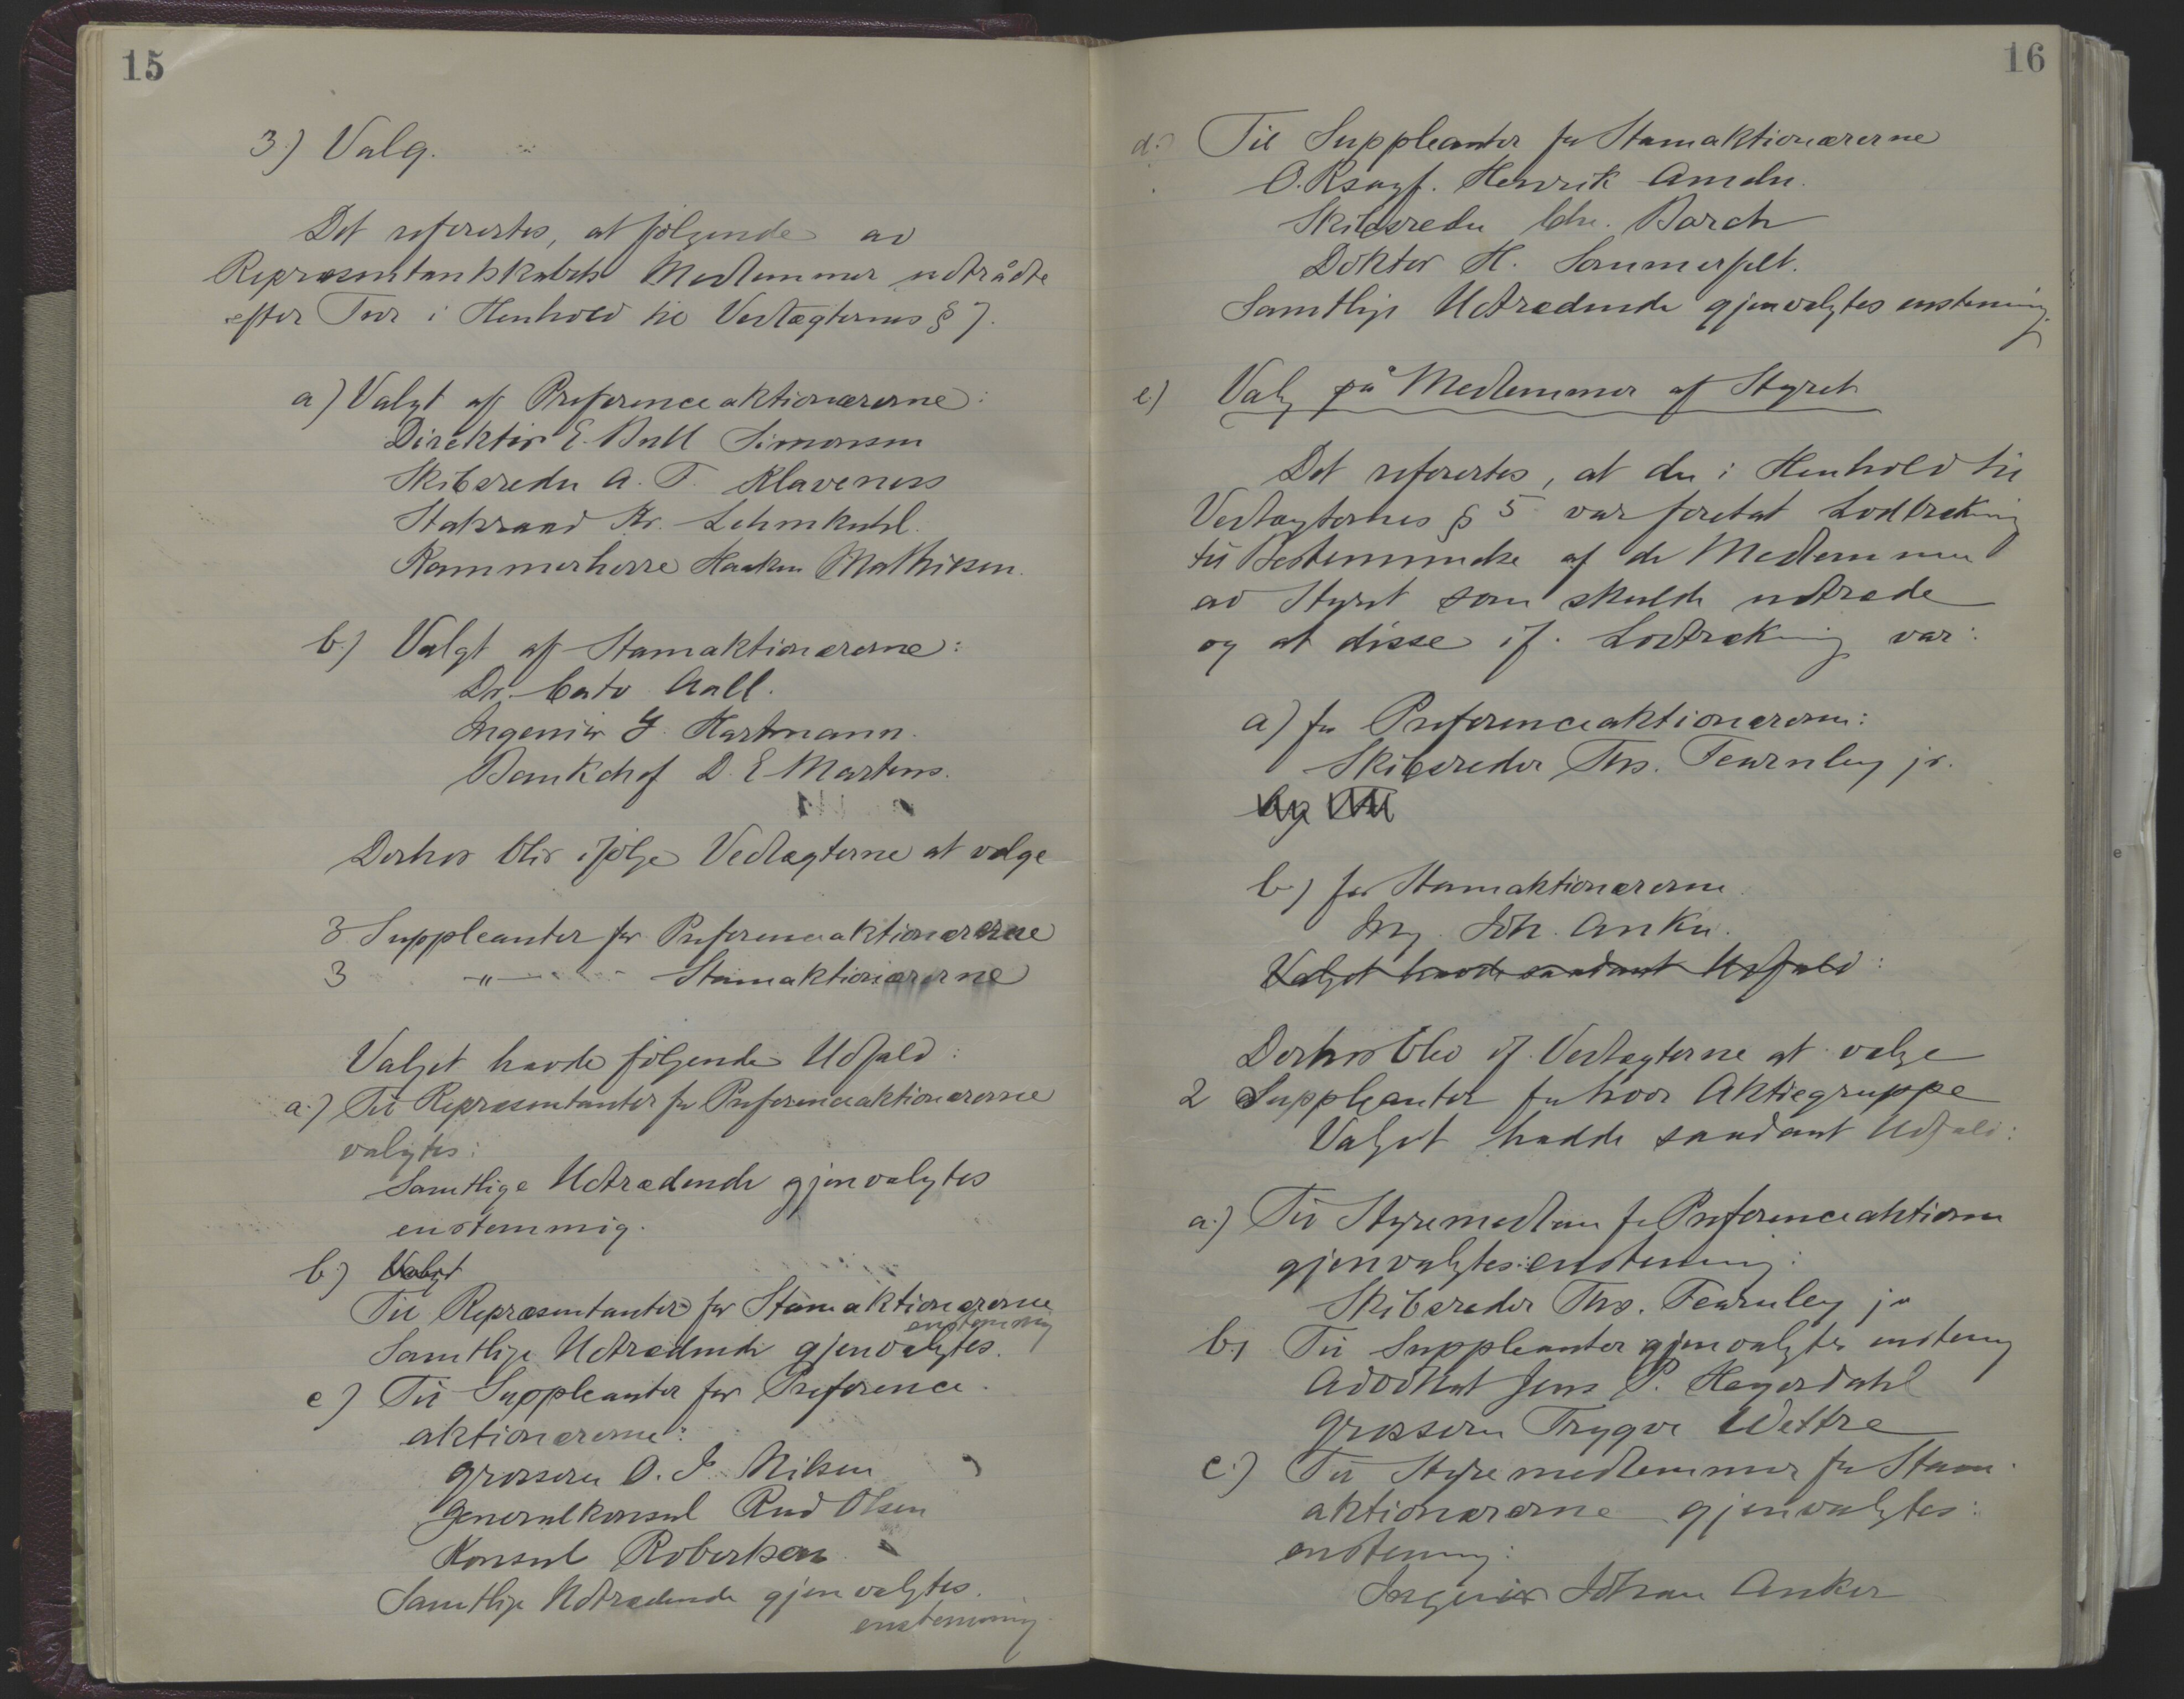 15
3.) Valg.
Det refertes, at følgende av
Repræsentantskabets Medlemmer udtrådte
efter Tur i Henhold til Vedtægternes § 7.
a) Valgt af Preferenceaktionærerne:
Direktør E. Bull Simonsen
Skibsreder A. F. Klaveness
Statsraad Kr. Lehmkuhl.
Kammerherre Haaken Mathiesen.
b) Valgt af Stamaktionærerne:
Dr. Cato Aall.
Ingeniør G. Hartmann.
Bankchef D. E Martens.
Derhos blir ifølge Vedtægterne at vælge
3 Suppleanter for Preferenceaktionærerne
3 —"— Stamaktionærerne
Valget havde følgende Udfald:
a.) Til Repræsentanter for Preferenceaktionærerne
valgtes:
Samtlige Udtrædende gjenvalgtes
enstemmig.
b) Valgt
Til Repræsentanter for Stamaktionærerne
enstemmig
Samtlige Udtrædende gjenvalgtes.
c) Til Suppleanter for Preference-
aktionærerne:
Grosserer O. J. Nilsen
Generalkonsul Rud Olsen
Konsul Robertson
Samtlige Udtrædende gjenvalgtes.
enstemmig
16
d.) Til Suppleanter for Stamaktionærerne
O.Rsagf. Henrik Ameln.
Skibsreder Chr. Borch
Doktor H. Sommerfelt.
Samtlige Udtrædende gjenvalgtes enstemmig.
e.) Valg på Medlemmer af Styret
Det refertes, at der i Henhold til
Vedtægternes § 5 var foretat Lodtrækning
til Bestemmelse af de Medlemmer
av Styret som skulde udtræde
og at disse if. Lodtrækning var:
a) for Preferenceaktionærerne:
Skibsreder Ths. Fearnley jr.
b) for Stamaktionærerne
Ing. Joh. Anker.
Valget havde saadant Udfald:
Derhos blev if. Vedtægterne at vælge
2 Suppleanter for hver Aktiegruppe
Valget hadde saadant Udfald:
a.) Til Styremedlem for Preferenceaktierne
gjenvalgtes enstemmig:
Skibsreder Ths. Fearnley jr
b) Til Suppleanter gjenvalgtes enstemmig
Advokat Jens P. Heyerdahl
Grosserer Trygve Wettre
c.) Til Styremedlemmer for Stam-
aktionærerne gjenvalgtes:
enstemmig:
Ingeniør Johan Anker